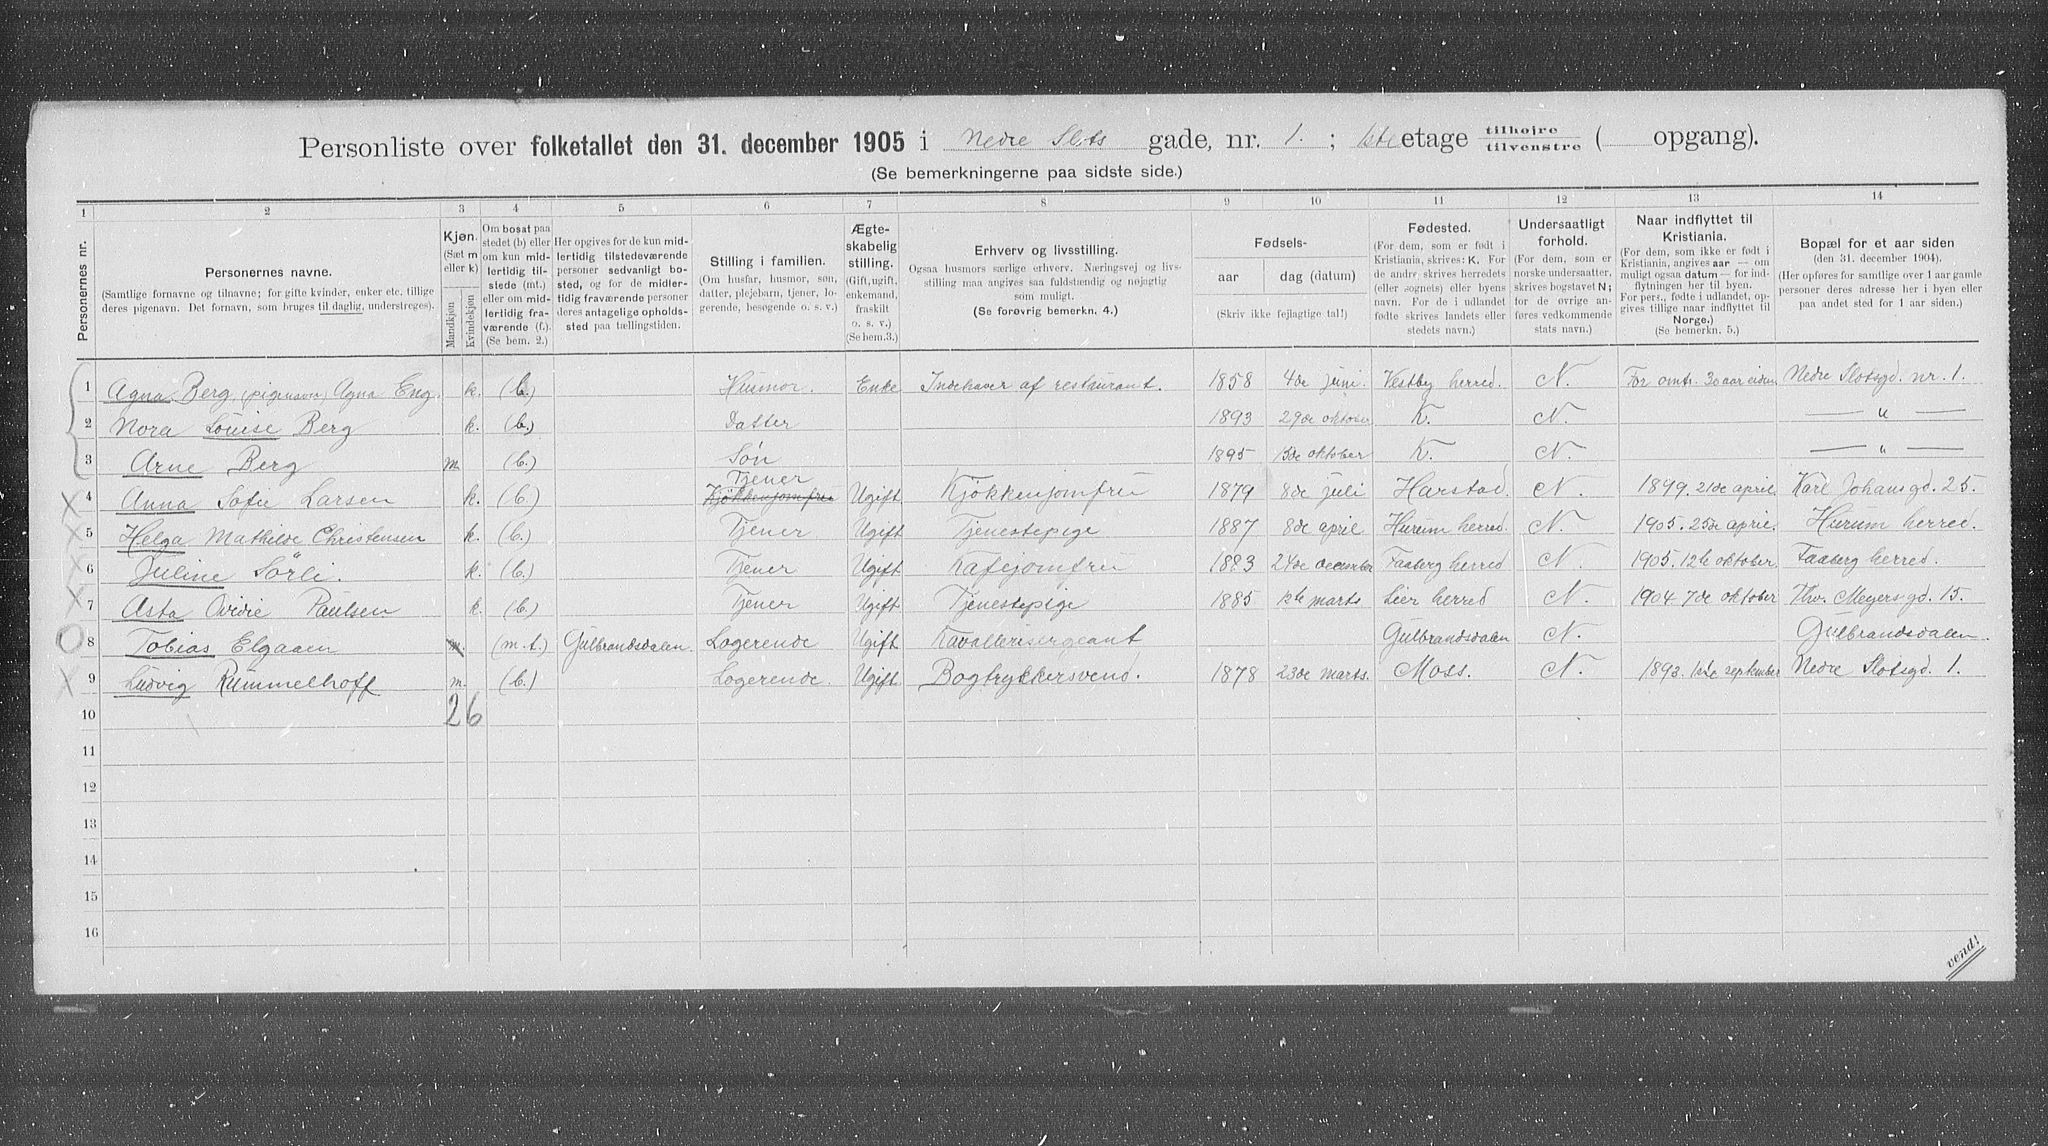 Personliste over folketallet den 31. december 1905 i Nedre Slots gade, nr. 1. ; 1ste etage tilhøjre tilvenstre ( opgang).
(Se bemerkningerne paa sidste side.)
1 2 3 4 5 6 7 8 9 10 11 12 13 14
Personernes nr.
Personernes navne.
(Samtlige fornavne og tilnavne; for gifte kvinder, enker etc. tillige
deres pigenavn. Det fornavn, som bruges til daglig, understreges).
Kjøn.
(Sæt m
eller k)
Mandkjøn
Kvindekjøn
Om bosat paa
stedet (b) eller
om kun mid-
lertidig til-
stede (mt.)
eller om mid-
lertidig fra-
værende (f.).
(Se bem. 2.)
Her opgives for de kun mid-
lertidig tilstedeværende
personer sedvanlig bo-
sted, og for de midler-
tidig fraværende personer
deres antagelige opholds-
sted paa tællingstiden.
Stilling i familien.
(Om husfar, husmor, søn,
datter, plejebarn, tjener, lo-
gerende, besøgende o. s. v.)
Ægte-
skabelig
stilling.
(Gift, ugift,
enkemand,
fraskilt
o. s. v.)
(Se bem.3.)
Erhverv og livsstilling.
Ogsaa husmors særlige erhverv. Næringsvej og livs-
stilling maa angives saa fuldstændig og nøjagtig
som muligt.
(Se forøvrig bemerkn. 4.)
Fødsels-
aar dag (datum)
(Skriv ikke fejlagtige tal!)
Fødested.
(For dem, som er født i
Kristiania, skrives: K. For
de andre skrives herredets
(eller sognets) eller byens
navn. For de i udlandet
fødte skrives landets eller
stedets navn.)
Undersaatligt
forhold.
(For dem, som er
norske undersaatter,
skrives bogstavet N;
for de øvrige an-
føres vedkommende
stats navn.)
Naar indflyttet til
Kristiania.
(For dem, som ikke er født i
Kristiania, angives aar — om
muligt ogsaa datum — for ind-
flytningen her til byen.
For pers., fødte i udlandet, op-
gives tillige naar indflyttet til
Norge.)
(Se bemerkn. 5.)
Bopæl for et aar siden
(den 31. december 1904).
(Her opføres for samtlige over 1 aar gamle
personer deres adresse her i byen eller
paa andet sted for 1 aar siden.)
1 Agna Berg (pigenavn) Agna Eng. k. (b.) Husmor. Enke Indehaver af restaurant. 1858 4de juni. Vestby herred. N. For omtr. 30 aar siden Nedre Slotsgd. nr. 1.
2 Nora Louise Berg k. (b.) Datter 1893 29de oktober K. N. — " —
3 Arne Berg m. (b.) Søn 1895 3de oktober K. N. — " —
Tjener
X 4 Anna Sofie Larsen k. (b.) Kjökkenjomfru Ugift Kjökkenjomfru 1879 8de juli Harstad. N. 1899. 21de april. Karl Johansgd. 25.
X 5 Helga Mathilde Christensen k. (b.) Tjener Ugift Tjenestepige 1887 8de april Hurum herred. N. 1905. 25de april. Hurum herred.
X 6 Juline Sörli. k. (b.) Tjener Ugift Kafejomfru 1883 24de december Faaberg herred N. 1905. 12te oktober. Faaberg herred.
X 7 Asta Ovidie Paulsen k. (b.) Tjener Ugift Tjenestepige 1885 12te marts Lier herred N. 1904 7de oktober Thv. Meyersgd. 15.
O 8 Tobias Elgaaen m. (m.t.) Gulbrandsdalen. Logerende Ugift Kavallerisergeant Gulbrandsdalen N. Gulbrandsdalen.
X 9 Ludvig Rummelhoff m. (b.) Logerende. Ugift Bogtrykkersvend. 1878 23de marts. Moss. N. 1893. 1ste september Nedre Slotsgd. 1.
10 2 6
11
12
13
14
15
16
vend!